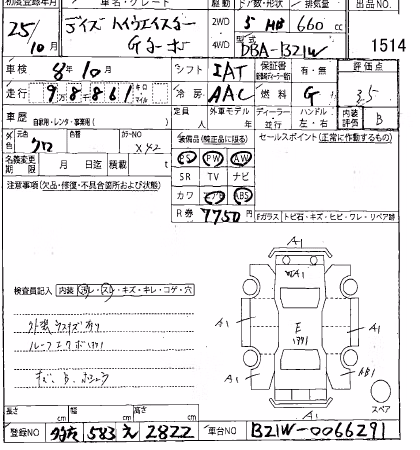 初度登録年月 車名・グレード ドア数・形状 排気量 出品NO
25/10月 デイズ ハイウェイスター Gターボ 2WD 4WD 5 HB 660cc
型式 DBA-B21W 1514
車検 8年10月 シフト IAT 有・無 評価点
走行 98861 キロ マイル 冷房 AAC 燃料 G 3.5
車歴 自家用・レンタ・事業用( ) 定員 人 外車モデル 年 ディーラー 並行 ハンドル 左・右 内装評価 B
外色 元色 クロ 色替 カラーNO X42 装備品(純正品に限る) セールスポイント(正常に動作するもの)
名義変更期限 月 日迄 積載 t PS PW AW
SR TV ナビ
注意事項(欠品・修復・不具合箇所および状態) カワ エアB ABS
R券 7750円 Fガラス トビ石・キズ・ヒビ・ワレ・リペア跡
A1
A1
検査員記入 内装 汚レ・スレ・キズ・キレ・コゲ・穴
A1
E
A1
外装ウスキズあり
ルーフエクボ
A1
AB1
A1
スペア
長さ cm 幅 cm 高さ cm
登録NO 583 え 2822 車台NO B21W-0066291